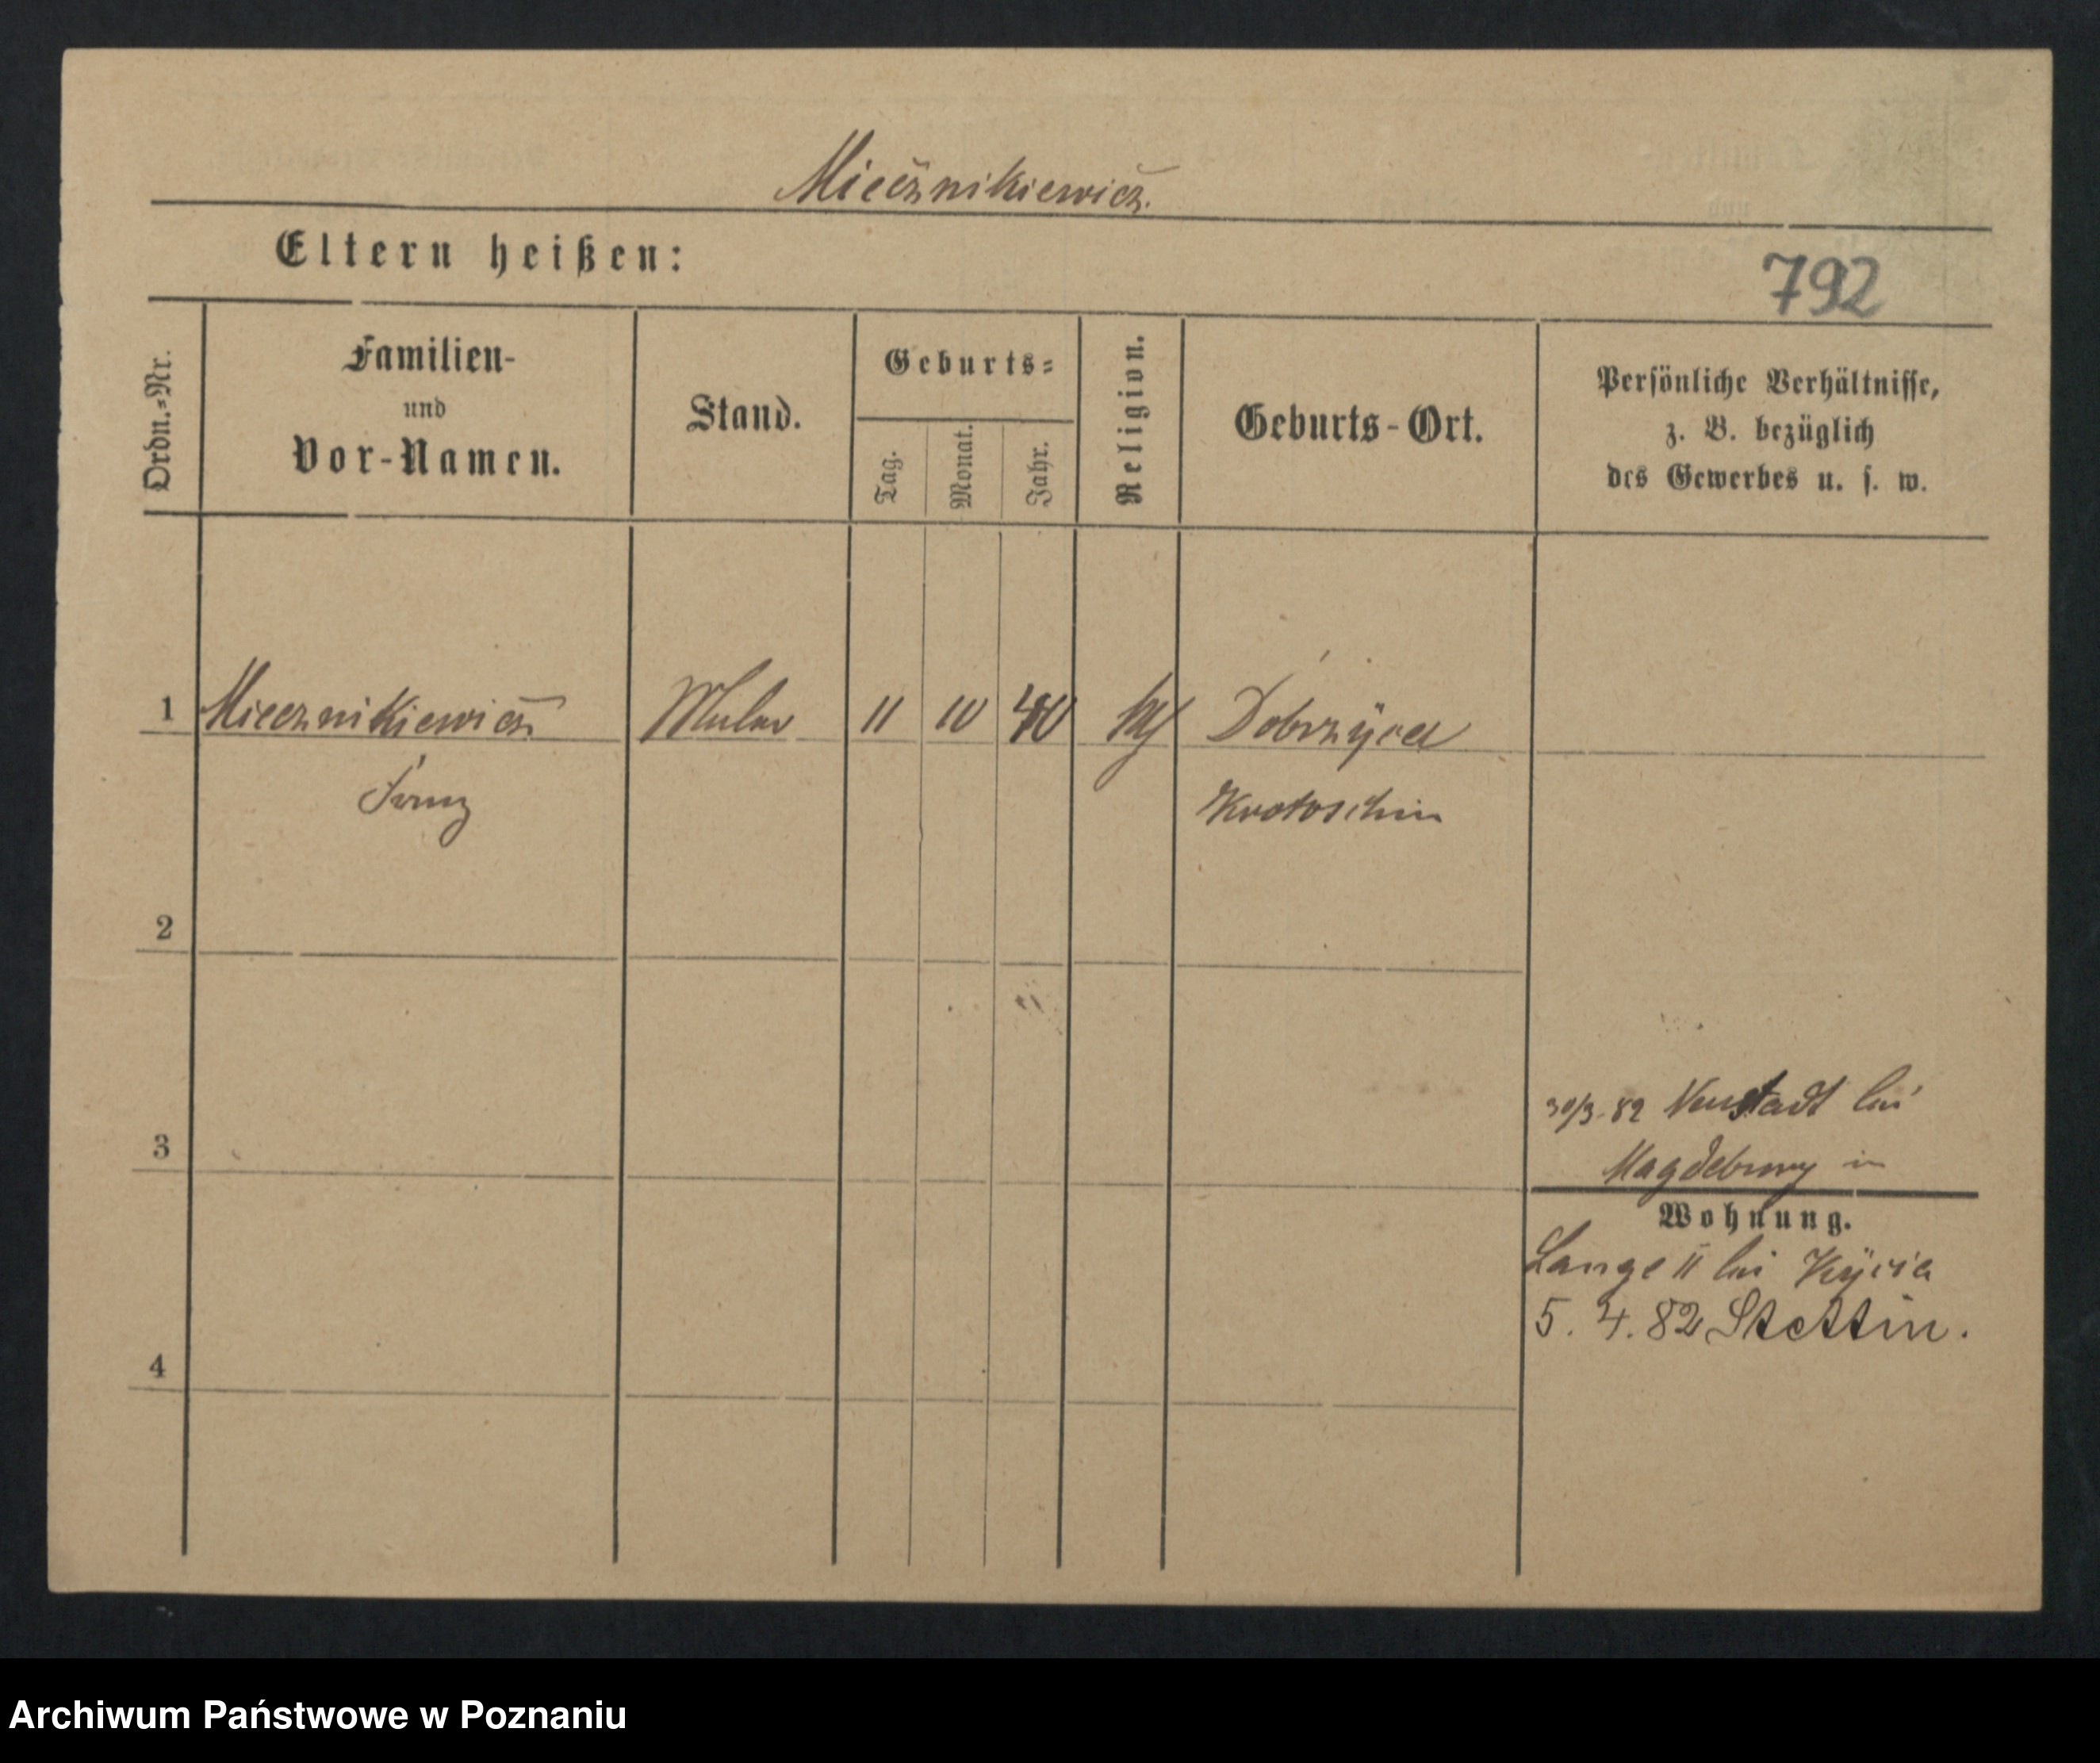 Miecznikiewicz.
Eltern heißen:
792
Ordn.-Nr.
Familien-
und
Vor-Namen.
Stand.
Geburts-
Tag.
Monat.
Jahr.
Religion.
Geburts-Ort.
Persönliche Verhältnisse,
z. B. bezüglich
des Gewerbes u. s. w.
1 Miecznikiewicz Maler 11 10 40 Dobrzyca
Franz Krotoschin
2
30/3. 82 Neustadt bei
3
Magdeburg in
Wohnung.
Lange 11 bei
5. 4. 82 Stettin.
4
Archiwum Państwowe w Poznaniu